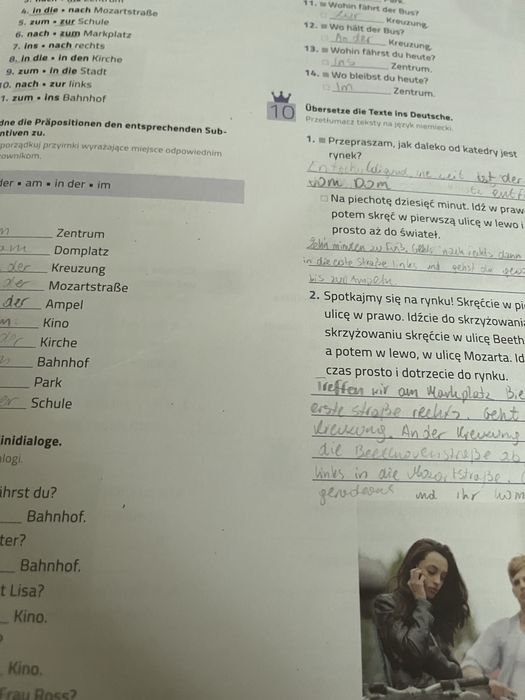 4. in die • nach Mozartstraße
5. zum • zur Schule
6. nach • zum Markplatz
7. ins • nach rechts
8. in die • in den Kirche
9. zum • in die Stadt
10. nach • zur links
1. zum • ins Bahnhof
dne die Präpositionen den entsprechenden Sub-
ntiven zu.
porządkuj przyimki wyrażające miejsce odpowiednim
ownikom.
der • am • in der • im
Zentrum
am Domplatz
der Kreuzung
der Mozartstraße
der Ampel
Kino
der Kirche
Bahnhof
Park
Schule
inidialoge.
alogi.
ährst du?
Bahnhof.
ter?
Bahnhof.
t Lisa?
Kino.
?
Kino.
Frau Ross?
11. Wohin fährt der Bus?
zur Kreuzung.
12. Wo hält der Bus?
An der Kreuzung.
13. Wohin fährst du heute?
Ins Zentrum.
14. Wo bleibst du heute?
Im Zentrum.
10 Übersetze die Texte ins Deutsche.
Przetłumacz teksty na język niemiecki.
1. Przepraszam, jak daleko od katedry jest
rynek?
wie weit ist der
vom Dom
Na piechotę dziesięć minut. Idź w praw
potem skręć w pierwszą ulicę w lewo i
prosto aż do świateł.
zu Fuß. nach rechts dann
in die Straße links und gehst
bis zur
2. Spotkajmy się na rynku! Skręćcie w pi
ulicę w prawo. Idźcie do skrzyżowania
skrzyżowaniu skręćcie w ulicę Beeth
a potem w lewo, w ulicę Mozarta. Id
czas prosto i dotrzecie do rynku.
Treffen wir am Markplatz Bie
erste straße rechts. Geht
Kreuzung. An der Kreuzung
die Beethovenstraße ab
links in die Mozartstraße.
geradeaus und ihr kom